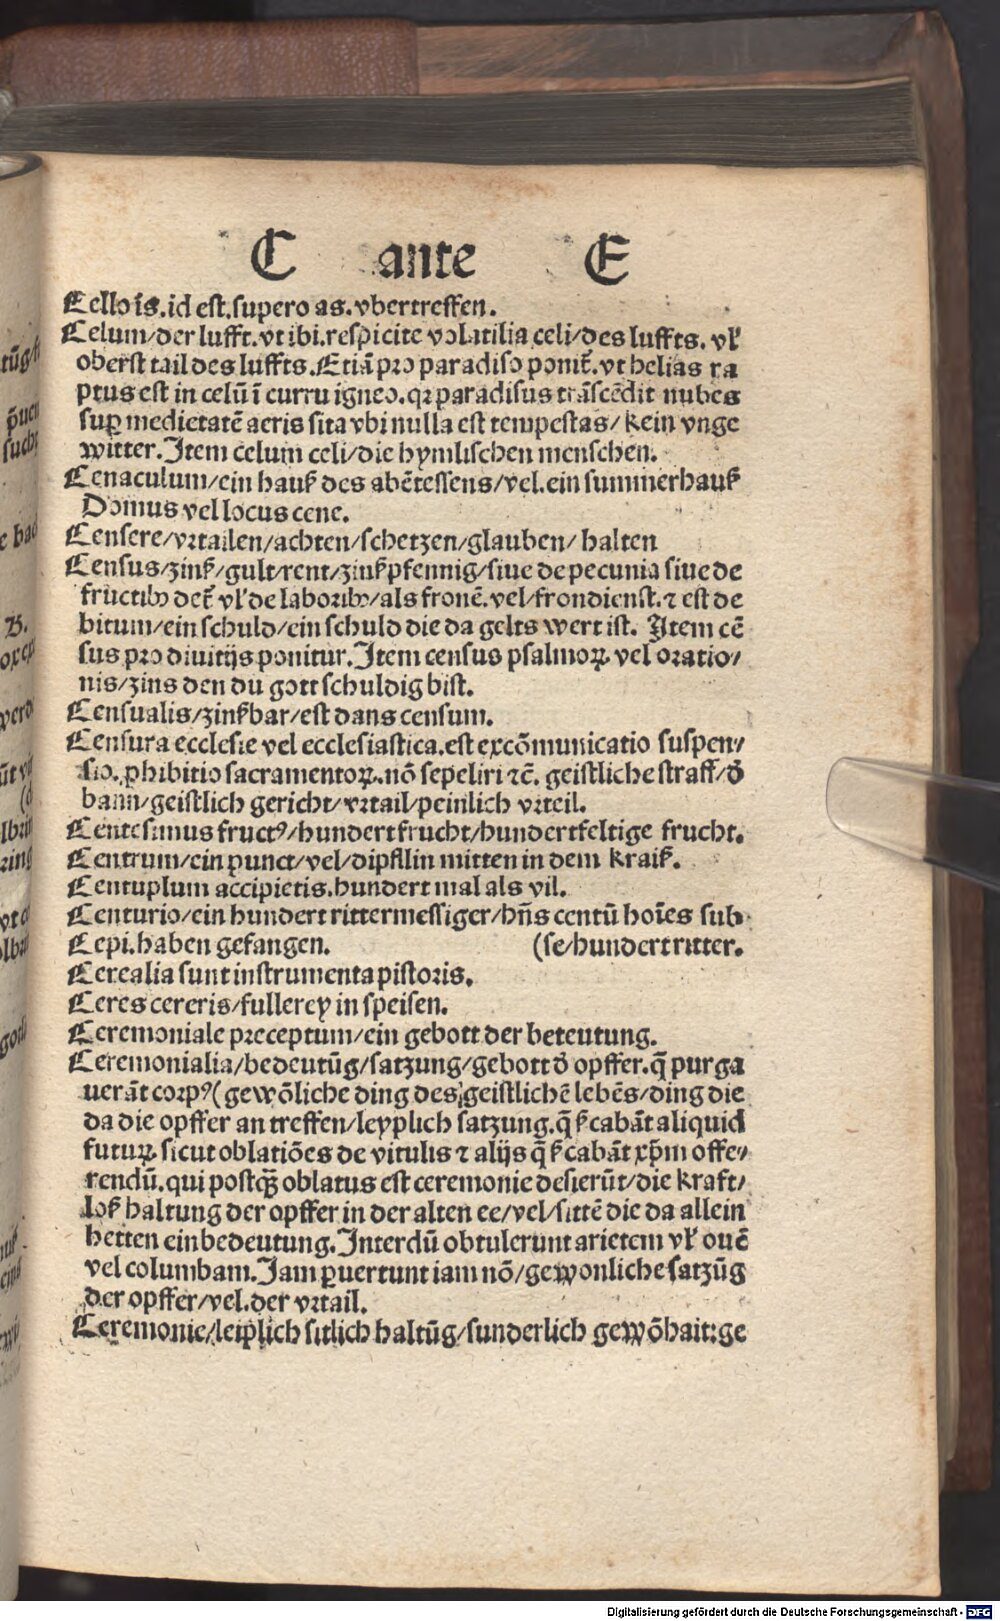 C ante E
Cello is. id est. supero as. vbertreffen.
Celum/der lufft. vt ibi. respicite volatilia celi/des luffts. vl̕
oberst tail des luffts. Etiã pro paradiso ponit̃. vt helias ra
ptus est in celũ ĩ curru igneo. qꝛ paradisus trãscẽdit nubes
suꝑ medietatẽ aeris sita vbi nulla est tempestas/kein vnge
witter. Item celum celi/die hymlischen menschen.
Cenaculum/ein hauß des abẽtessens/vel. ein summerhauß
Domus vel locus cene.
Censere/vrtailen/achten/schetzen/glauben/halten
Census/zinß/gult/rent/zinßpfennig/siue de pecunia siue de
fructibꝰ det̃ vl̕ de laboribꝰ/als fronẽ. vel/frondienst. ⁊ est de
bitum/ein schuld/ein schuld die da gelts wert ist. Item cẽ
sus pro diuitijs ponitur. Item census psalmoꝝ vel oratio/
nis/zins den du gott schuldig bist.
Censualis/zinßbar/est dans censum.
Censura ecclesie vel ecclesiastica. est excõmunicatio suspen/
sio. ꝓhibitio sacramentoꝝ. nõ sepeliri ⁊c̃. geistliche straff/d̕
bann/geistlich gericht/vrtail/peinlich vrteil.
Centesimus fructꝰ/hundert frucht/hundertfeltige frucht.
Centrum/ein punct/vel/dipflin mitten in dem kraiß.
Centuplum accipietis. hundert mal als vil.
Centurio/ein hundert rittermessiger/hñs centũ hoĩes sub
Cepi. haben gefangen. (se/hundert ritter.
Cerealia sunt instrumenta pistoris.
Ceres cereris/fullerey in speisen.
Ceremoniale preceptum/ein gebott der beteutung.
Ceremonialia/bedeutũg/satzung/gebott d̕ opffer. q̃ purga
uerãt corpꝰ (gewõliche ding des geistlichẽ lebẽs/ding die
da die opffer an treffen/leyplich satzung. q̃ ß cabãt aliquid
futuꝝ. sicut oblatiões de vitulis ⁊ alijs q̃ ß cabãt xp̃m offe/
rendũ. qui postq̃ oblatus est ceremonie desierũt/die kraft/
loß haltung der opffer in der alten ee/vel/sittẽ die da allein
hetten ein bedeutung. Interdũ obtulerunt arietem vl̕ ouẽ
vel columbam. Iam ꝑuertunt iam nõ/gewonliche satzũg
der opffer/vel. der vrtail.
Ceremonie/leiplich sitlich haltũg/sunderlich gewõhait: ge
Digitalisierung gefördert durch die Deutsche Forschungsgemeinschaft - DFG